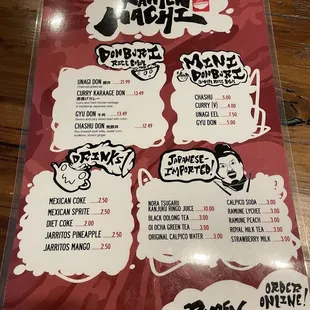 RAMEN
HACHI
DONBURI
RICE BOWL
UNAGI DON 鰻丼 ....21.99
CURRY KARAAGE DON ....13.49
唐揚げカレー
GYU DON 牛丼 ....13.49
CHASHU DON ....12.49
MINI
DONBURI
CHASHU ....5.00
CURRY (V) ....4.00
UNAGI EEL ....7.50
GYU DON ....5.00
DRINKS!
MEXICAN COKE ....2.50
MEXICAN SPRITE ....2.50
DIET COKE ....2.00
JARRITOS PINEAPPLE ....2.50
JARRITOS MANGO ....2.50
JAPANESE-
IMPORTED!
NORA TSUGARU
KANJUKU RINGO JUICE ....10.00
BLACK OOLONG TEA ....3.00
OI OCHA GREEN TEA ....3.00
ORIGINAL CALPICO WATER ....3.00
CALPICO SODA ....3.00
RAMUNE LYCHEE ....3.00
RAMUNE PEACH ....3.00
ROYAL MILK TEA ....3.00
STRAWBERRY MILK ....3.00
ORDER
ONLINE!
RAMEN